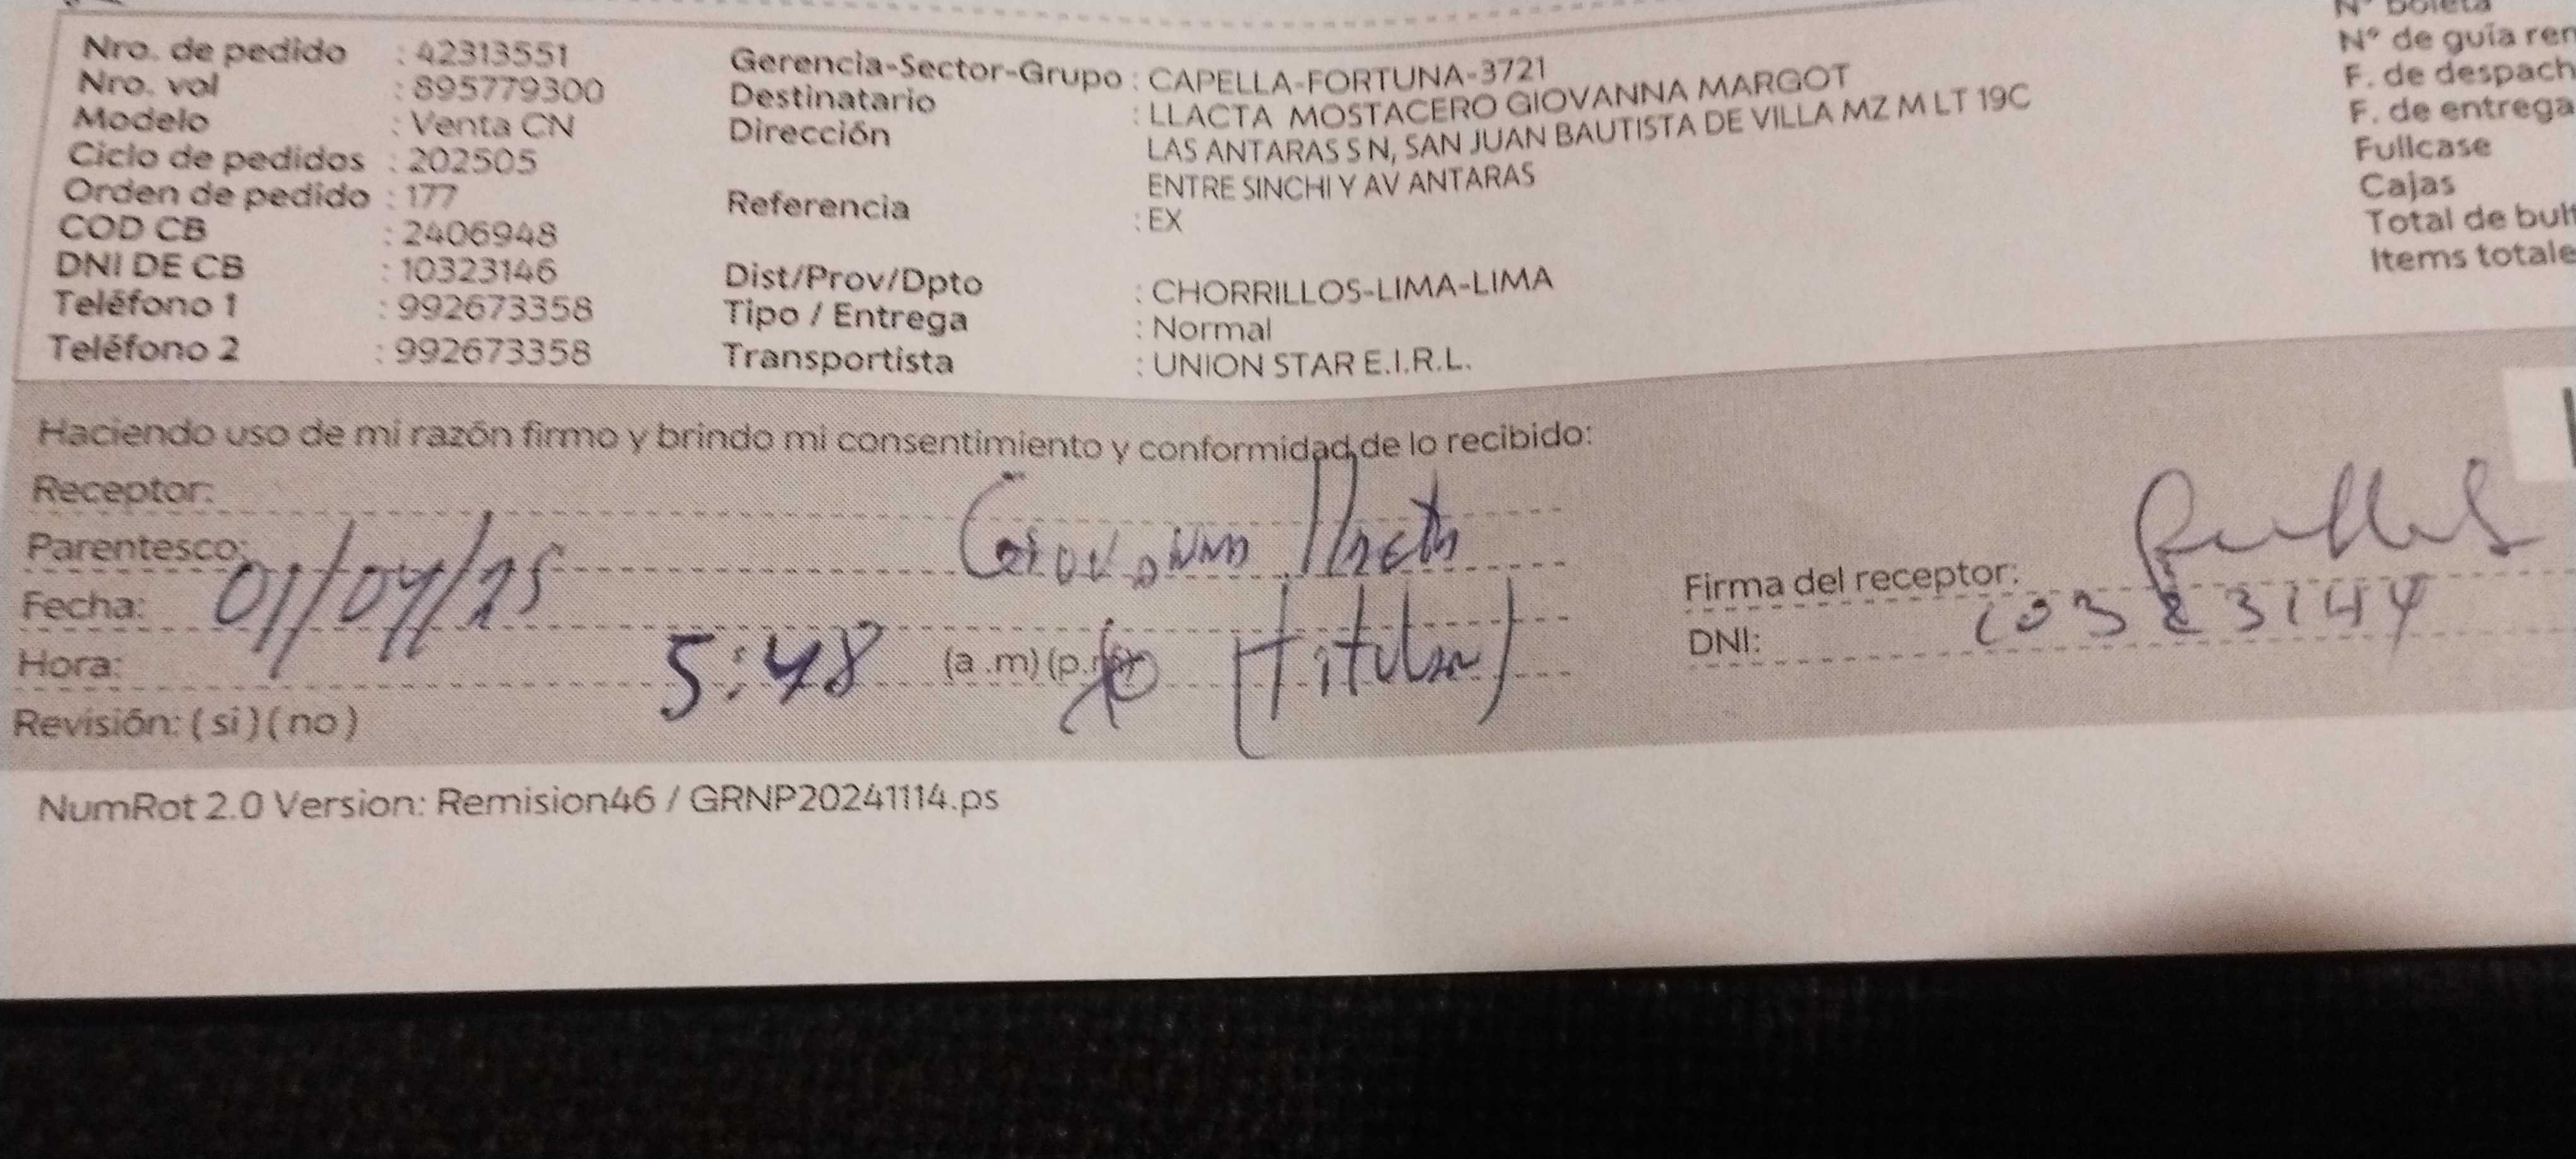 Nro. de pedido : 42313551
Nro. vol : 895779300
Modelo : Venta CN
Ciclo de pedidos : 202505
Orden de pedido : 177
COD CB : 2406948
DNI DE CB : 10323146
Teléfono 1 : 992673358
Teléfono 2 : 992673358
Gerencia-Sector-Grupo : CAPELLA-FORTUNA-3721
Destinatario : LLACTA MOSTACERO GIOVANNA MARGOT
Dirección LAS ANTARAS S N, SAN JUAN BAUTISTA DE VILLA MZ M LT 19C
ENTRE SINCHI Y AV ANTARAS
Referencia : EX
Dist/Prov/Dpto : CHORRILLOS-LIMA-LIMA
Tipo / Entrega : Normal
Transportista : UNION STAR E.I.R.L.
N° boleta
N° de guía
F. de
F. de entrega
Fullcase
Cajas
Total de
Items
Haciendo uso de mi razón firmo y brindo mi consentimiento y conformidad de lo recibido:
Receptor:
Parentesco: Giovanna Llacta
Fecha: 01/04/25
Hora: 5:48 (a .m) (p.m) (titular)
Revisión: ( si ) ( no )
Firma del receptor:
DNI: 10323144
NumRot 2.0 Version: Remision46 / GRNP20241114.ps